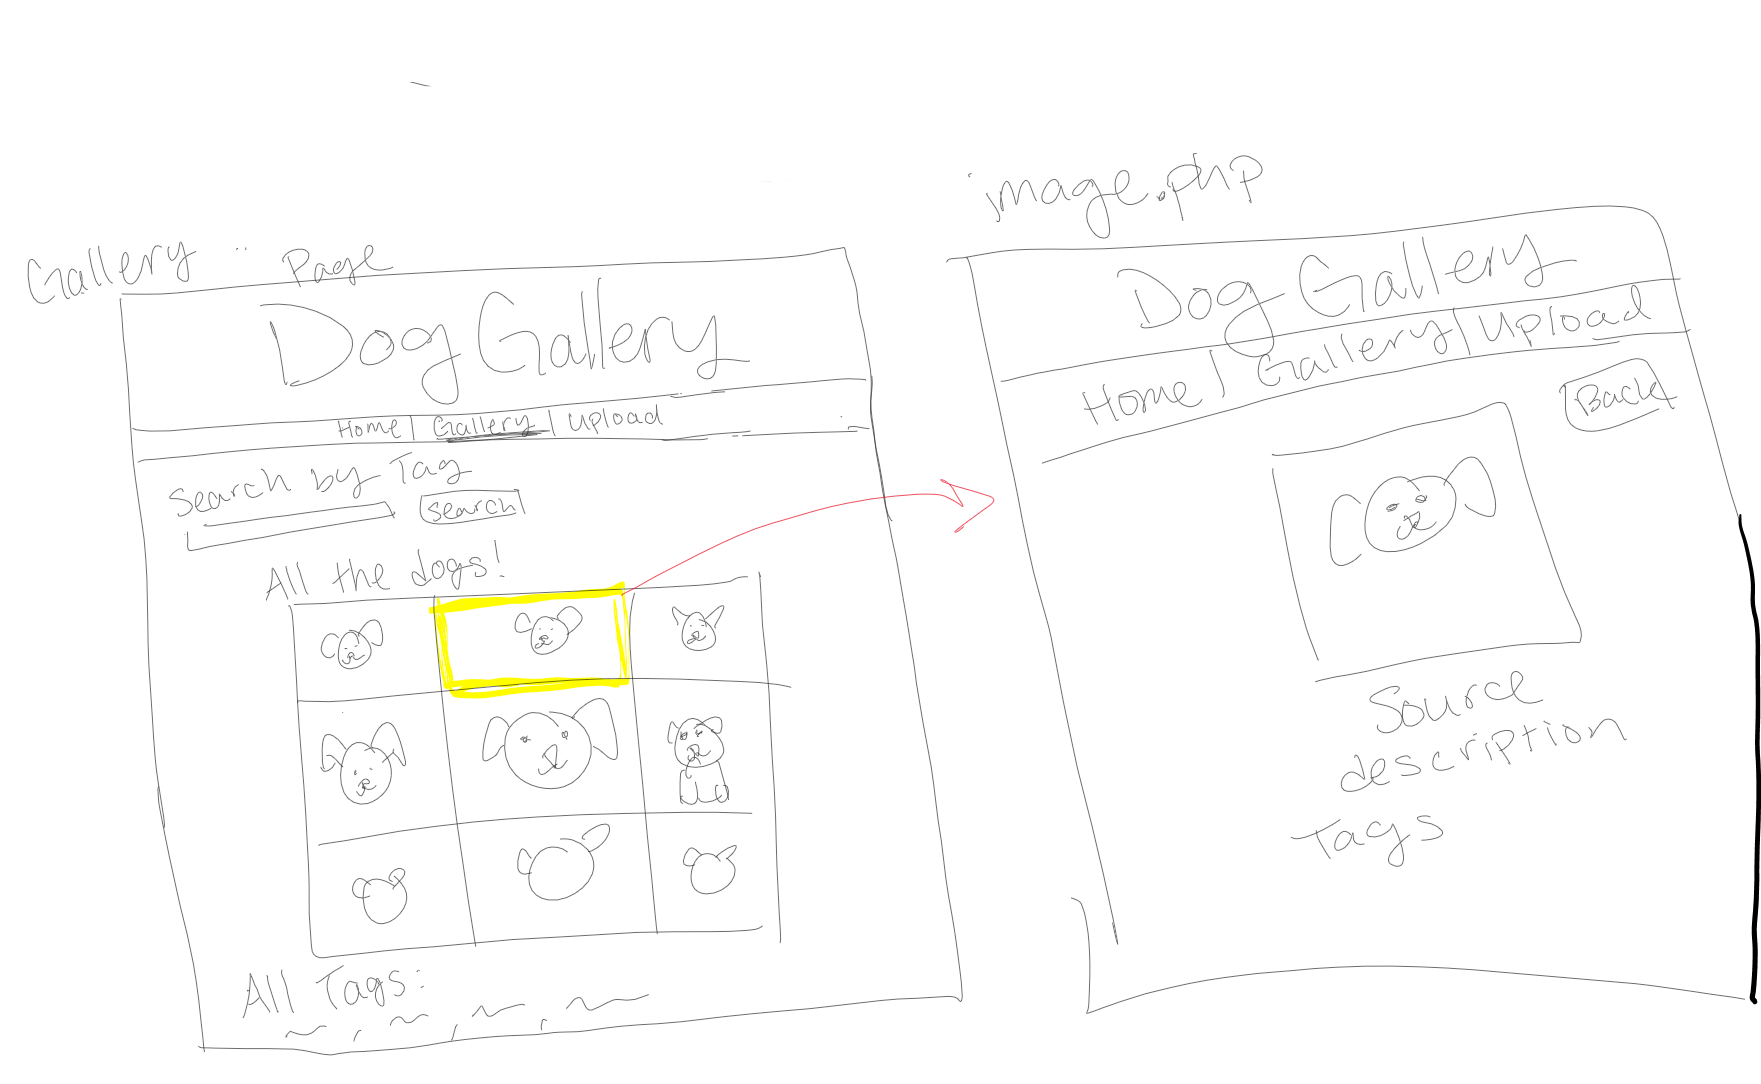 Gallery Page
Dog Gallery
Home | Gallery | Upload
Search by Tag
search
All the dogs!
All Tags:
image.php
Dog Gallery
Home | Gallery | Upload
Back
Source
description
Tags